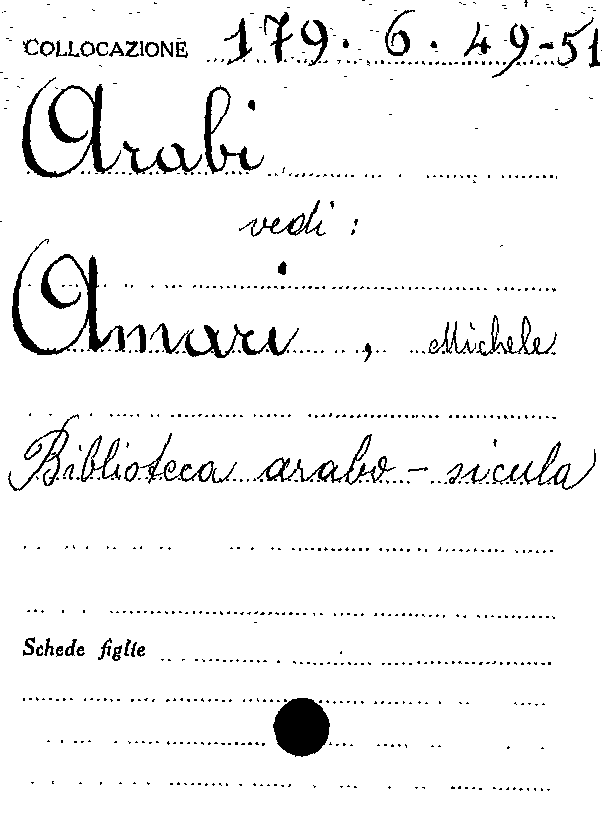 COLLOCAZIONE 179. 6. 49-51
Arabi
vedi :
Amari, Michele
Biblioteca arabo - sicula
Schede figlie